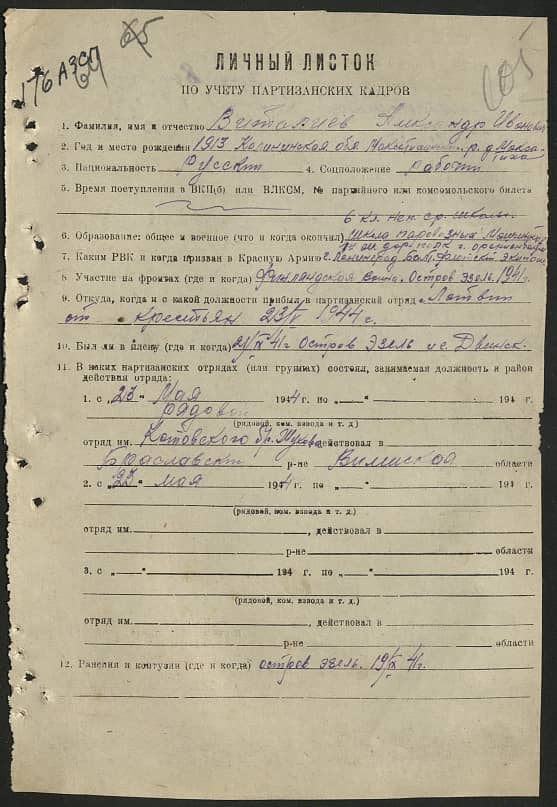 65
176 АЗСП
ЛИЧНЫЙ ЛИСТОК
ПО УЧЕТУ ПАРТИЗАНСКИХ КАДРОВ
1. Фамилия, имя и отчество Александр Иванович
2. Год и место рождения 1913 Калининская обл
3. Национальность Русский 4. Соцположение рабочий
5. Время поступления в ВКП(б) или ВЛКСМ, № партийного или комсомольского билета
6 кл. неп. ср. школы.
6. Образование: общее и военное (что и когда окончил) школа
7. Каким РВК и когда призван в Красную Армию г. Ленинград Балт. флотский экипаж
8. Участие на фронтах (где и когда) Финляндская война. Остров Эзель. 1941г
9. Откуда, когда и с какой должности прибыл в партизанский отряд Латвия
от крестьян 23/V 1944 г.
10. Был ли в плену (где и когда) 21/IX 41г Остров Эзель и с. Двинск.
11. В каких партизанских отрядах (или группах) состоял, занимаемая должность и район
действия отряда:
1. с „23" Мая 1944 г. по „ " 194 г.
рядовой
(рядовой, ком. взвода и т. д.)
отряд им. Котовского бр. Жукова действовал в
Браславский р-не Вилейская области
2. с „23" мая 1944 г. по „ " 194 г.
(рядовой, ком. взвода и т. д.)
отряд им. , действовал в
р-не области
3. с „ " 194 г. по „ " 194 г.
(рядовой, ком. взвода и т. д.)
отряд им. , действовал в
р-не области
12. Ранения и контузии (где и когда) остров Эзель. 19/IX 41г.